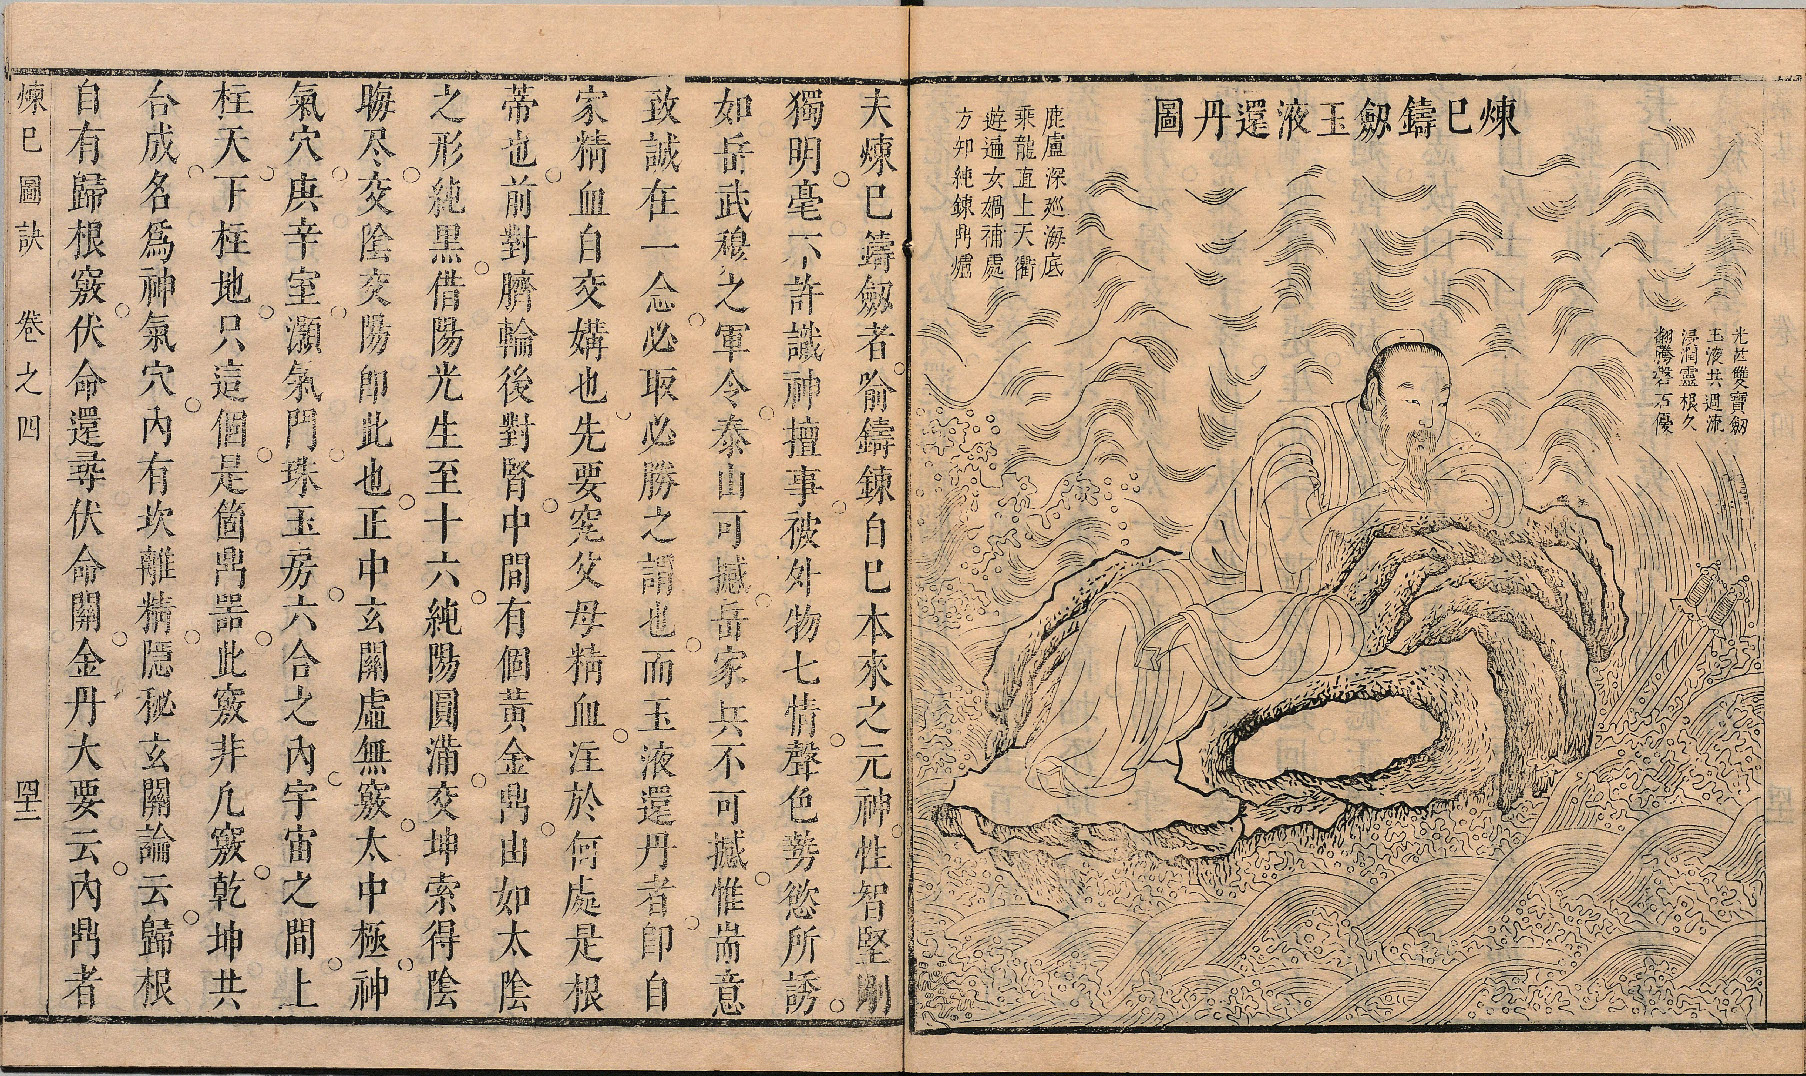 煉巳鑄劔玉液還丹圖
光芒雙寶劔
玉液共週流
浸潤靈根久
翻騰磐石優
鹿盧深廵海底
乘龍直上天衢
遊遍女媧補處
方知純鍊鼎爐
夫煉巳鑄劔者喻鑄鍊自巳本來之元神性智堅剛
獨明毫不許識神擅事被外物七情聲色勢慾所誘
如岳武穆之軍令泰山可撼岳家兵不可撼惟耑意
致誠在一念必取必勝之謂也而玉液還丹者卽自
家精血自交媾也先要究父母精血注於何處是根
蒂也前對臍輪後對腎中間有個黃金鼎由如太陰
之形純黑借陽光生至十六純陽圓滿交坤索得陰
晦尽交陰交陽卽此也正中玄關虛無竅太中極神
氣穴庚辛室灝氣門珠玉房六合之內宇宙之間上
柱天下柱地只這個是箇鼎器此竅非凡竅乾坤共
合成名爲神氣穴內有坎離精隱秘玄關論云歸根
自有歸根竅伏命還尋伏命關金丹大要云內鼎者
煉巳圖訣 卷之四 四十二